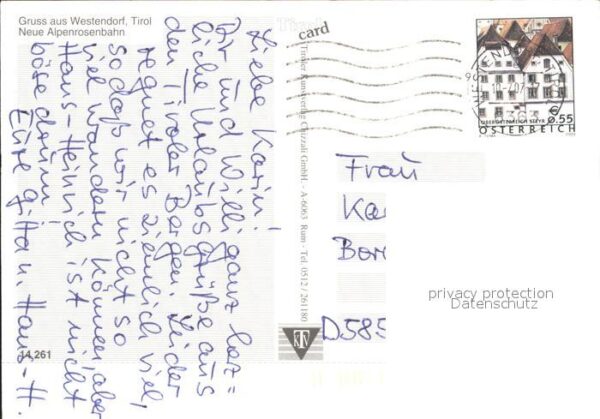 Gruss aus Westendorf, Tirol
Neue Alpenrosenbahn
Liebe Karin!
Dir und Willi ganz herz=
liche Urlaubsgrüße aus
den Tiroler Bergen. Leider
regnet es ziemlich viel,
sodaß wir nicht so
viel wandern können, aber
Hans-Heinrich ist nicht
böse darum!
Eure Gitta u. Hans-H.
14.261
card
Tiroler Kunstverlag Chizzali GmbH. - A-6063 Rum - Tel. 0512 / 261180
6363
UBERGRÜNBERG STEYR
0,55
ÖSTERREICH
Frau
Ka
Bor
D585
privacy protection
Datenschutz